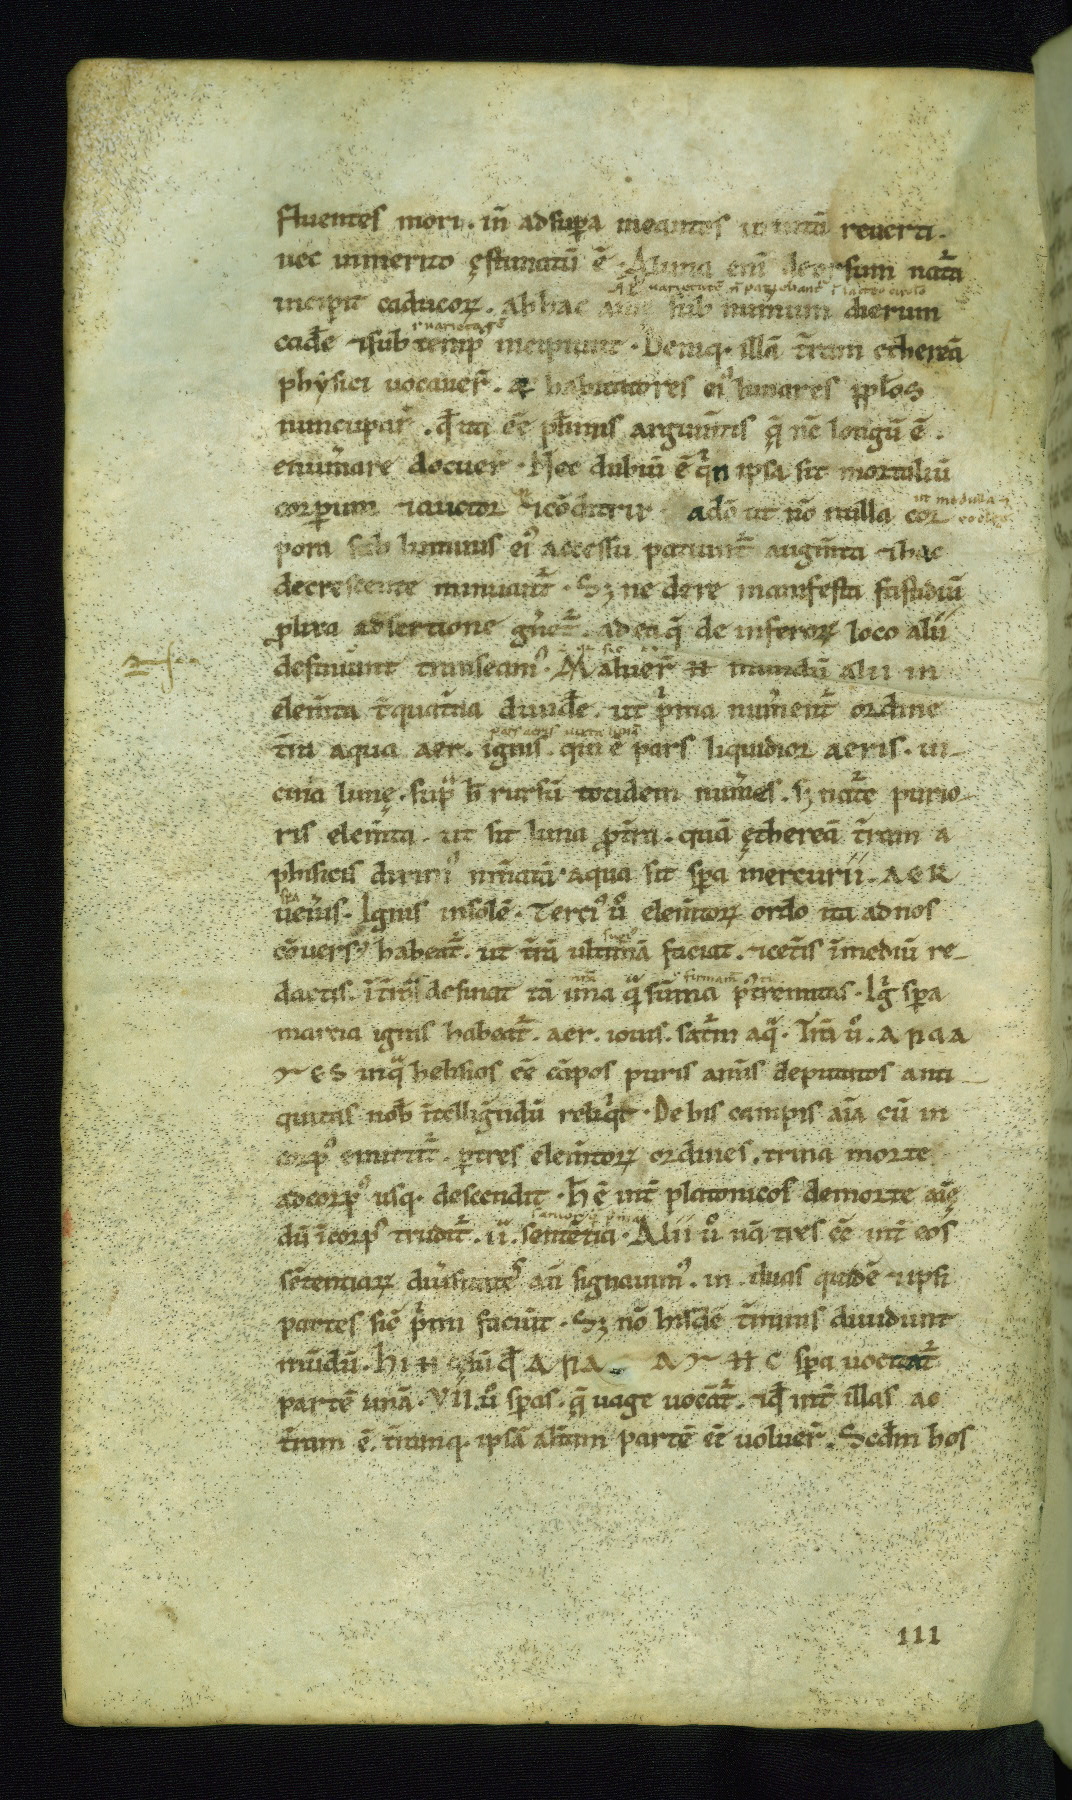 fluentes mori . iñ ad supa meantes in uitā reuerti .
nec inmerito ęstimatū ē . A luna enī deorsum nat̃a
incipit caducoꝝ . ab hac aiȩ sub numum dierum
cadẽ ⁊ sub temp̃ incipiunt . Deniq; illā t̃ram etheream
physici uocauer̃ . ⁊ habitatores ei᷒ lunares pp̃los
nuncupar̃ . qđ ita eē pl̃imis argum̃tis q̃ nc̃ longū ē .
enum̃are docuer̃ . Nec dubiū ē q̃n ipsa sit mortaliū
corpum ⁊ auctor ⁊ cōditrix adō ut nō nulla cor
pora sub luminis ei᷒ accessu patiunt̃ augm̃ta ⁊ hac
decrescente minuant̃ . Sꝫ ne de re manifesta fastidiū
ꝓlixa adsertione gñet̃ . ad ea q̃ de inferoꝝ loco alii
definiunt transeam᷒ . Maluer̃ N̄ mundū alii in
elem̃ta t̃ quat̃na diuidẽ . ut p̃ma num̃ent̃ ordine
t̃ra aqua aer . ignis . qui ē pars liquidior aeris . ui-
cina lunę . supͣ h̃ rursū totidem num̃es . sꝫ nat̃e purio
ris elem̃ta . ut sit luna ꝓ t̃ra . quā ętherea t̃ram a
phisicis dixim᷒ nūcatā . aqua sit sp̃a mercurii . AER
uen̄is . Ignis in sole . Terci᷒ u᷒ elem̃toꝝ ordo ita ad nos
cōuers᷒ habeat̃ . ut t̃rā ultimā faciat . ⁊ cet̃is ī mediū re-
dactis . ī t̃ras desinat tā ima qͣ sūma ꝑ tremitas . Ig̃ sp̃a
marcia ignis habeat̃ . aer . iouis . sat̃ni aq̃ . T̃ra u᷒ . APLA
NES in qͣ helisios eē cāpos puris anīs deputatos anti-
quitas nob̃ ītelligndū reliqt̃ . De his campis aīa cū in
corp᷒ emittit̃ . ꝑ tres elem̃toꝝ ordines . trina morte
ad corp᷒ usq; descendit . h̃ ē int̃ platonicos de morte aīę
dū ī corp᷒ trudit̃ . ii . sentētia . Alii u᷒ nā tres eē int̃ eos
sētentiaꝝ diũsitates añ signauim᷒ . in duas quidē ⁊ ipsi
partes sic̃ p̃mi faciūt . Sꝫ nō hisdē t̃minis diuidunt
mūdū . hi N̄ celū qđ APLA NHC sp̃a uocitat̃
partē unā . VII . u᷒ sp̃as . q̃ uage uocāt̃ . ⁊ qđ int̃ illas ac
t̃ram ē . t̃ramq; ipsā alt̃am partē eē uoluer̃ . Scđm hos
111